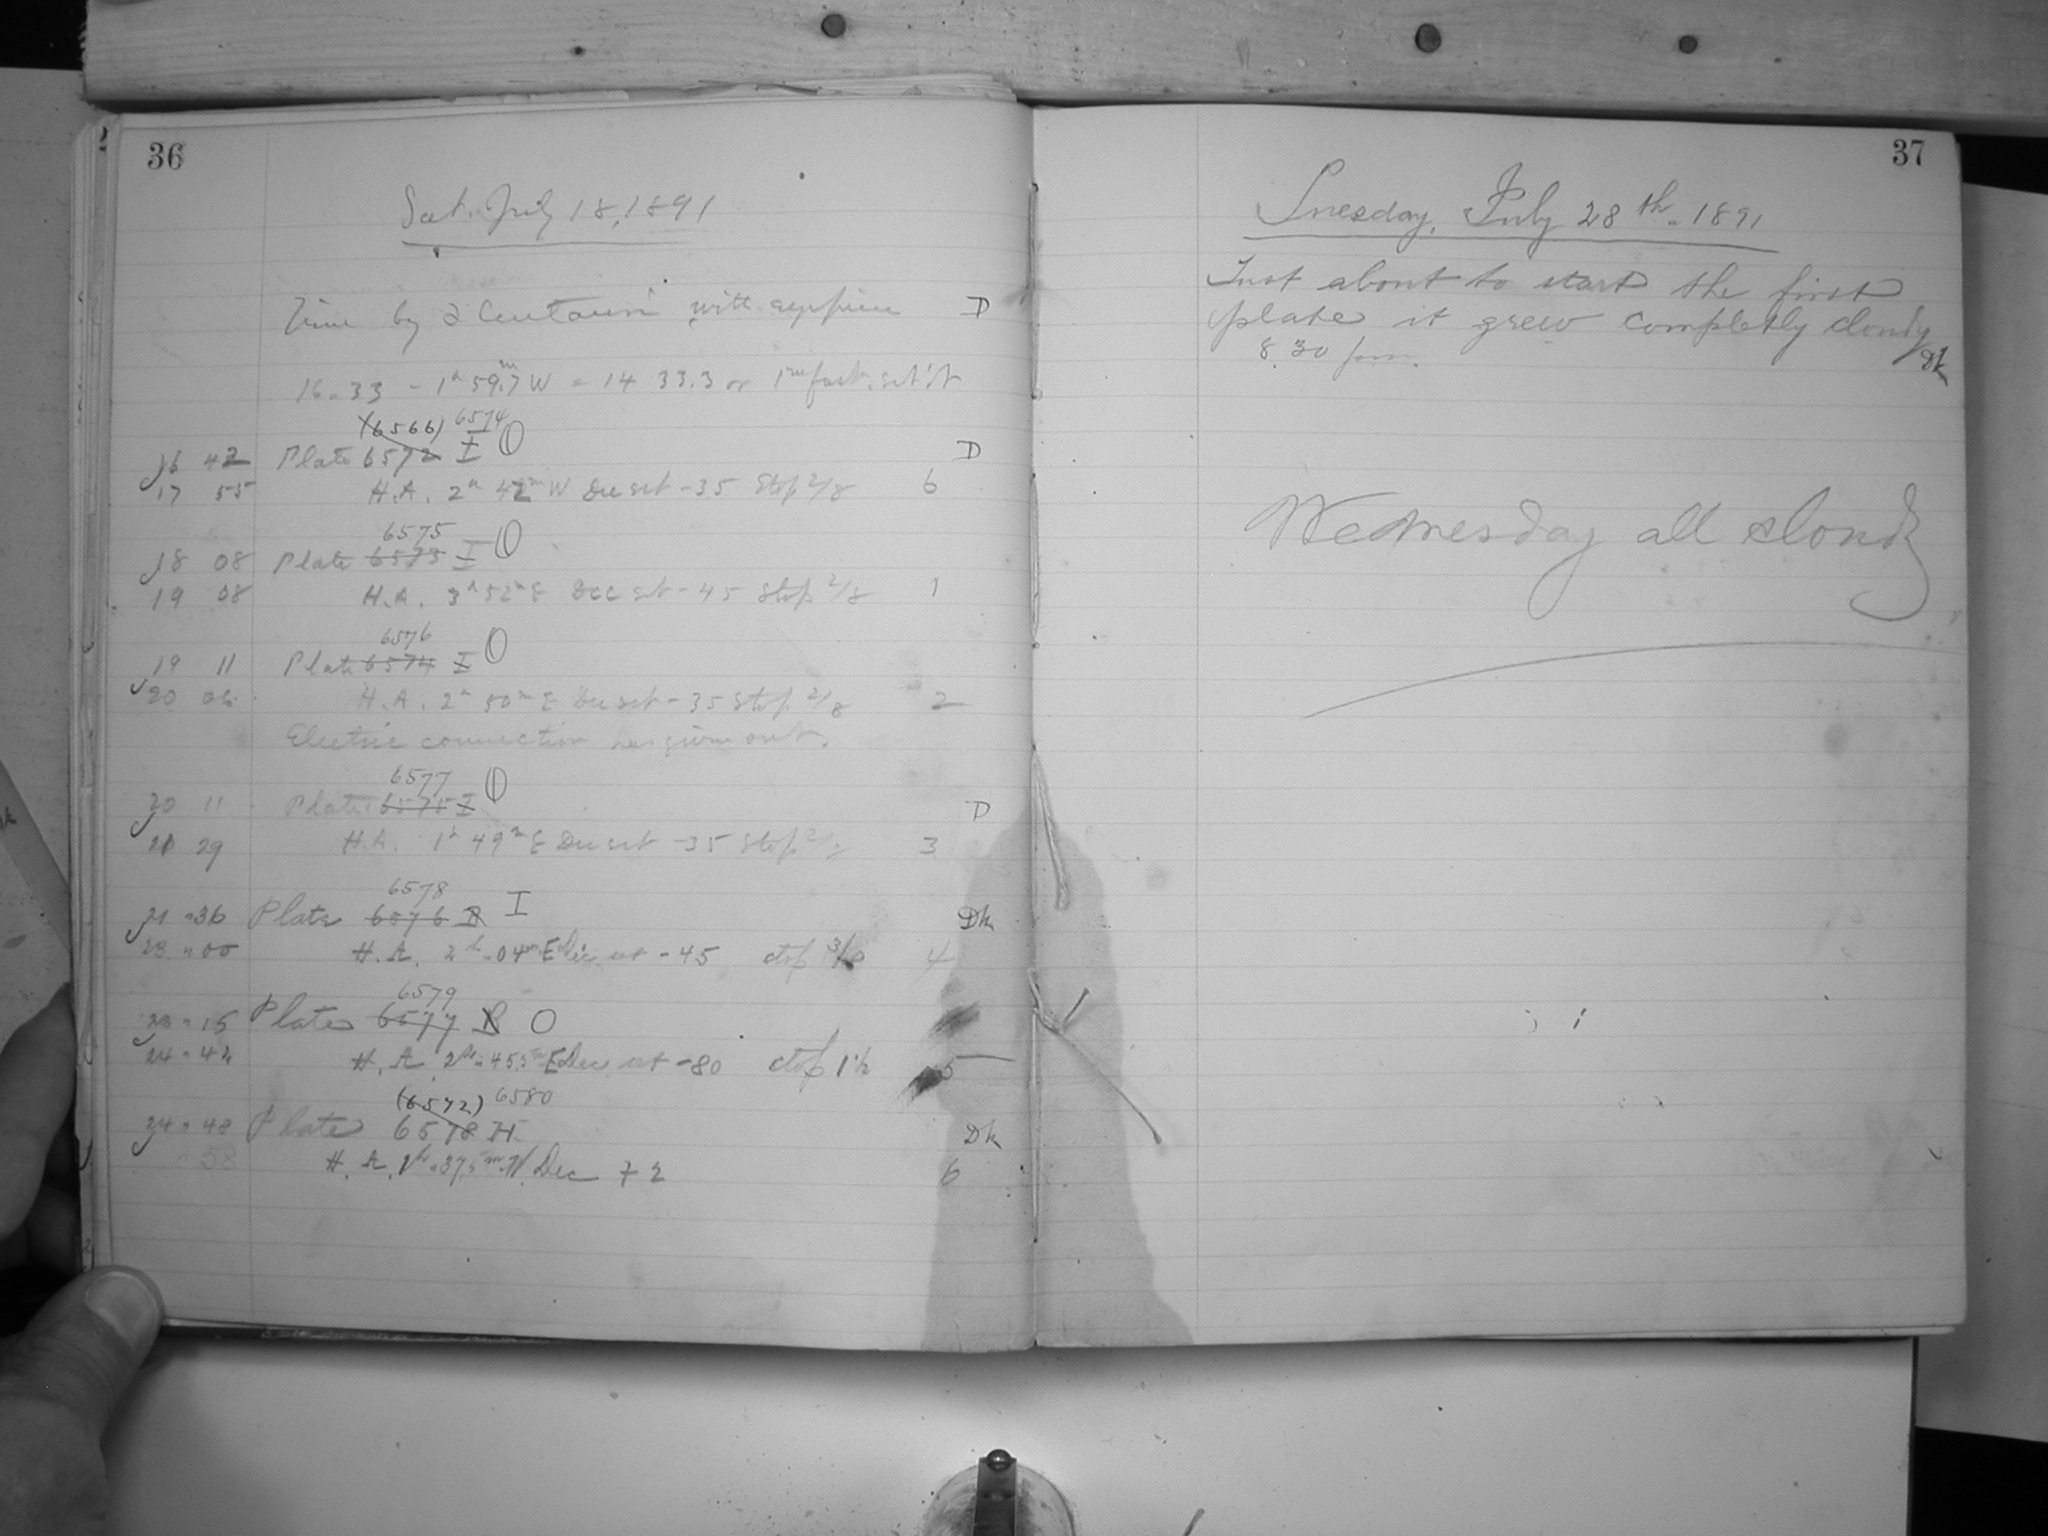 36
Sat. July 18, 1891
Time by α Centauri with eyepiece D
16.33 - 1h 59.7m W = 14 33.3 or 1m fast. set it
(6566) 6574
16 42 Plate 6572 I O D
17 55 H.A. 2h 42m W Dec set -35 Stop 2/8 6
6575
18 08 Plate 6573 I O
19 08 H.A. 3h 52m E Dec set -45 Stop 2/8 1
6576
19 11 Plate 6574 I O
20 06 H.A. 2h 50m E Dec set -35 Stop 2/8 2
Electric connection has given out.
6577
20 11 Plate 6575 I O D
21 29 H.A. 1h 49m E Dec set -35 Stop 2/8 3
6578
21 36 Plate 6576 B I Dk
23 00 H.A. 2h 04m E Dec. set -45 stop 3/8 4
6579
23 15 Plate 6577 B O
24 42 H.A. 2h 45.5m E Dec set -80 stop 1 1/2 5
(6572) 6580
24 48 Plate 6578 I Dk
58 H.A. 1h 37.5m W. Dec +2 6
37
Tuesday, July 28th. 1891
Just about to start the first
plate it grew completly cloudy
8.30 p.m. Dk
Wednesday all cloudy